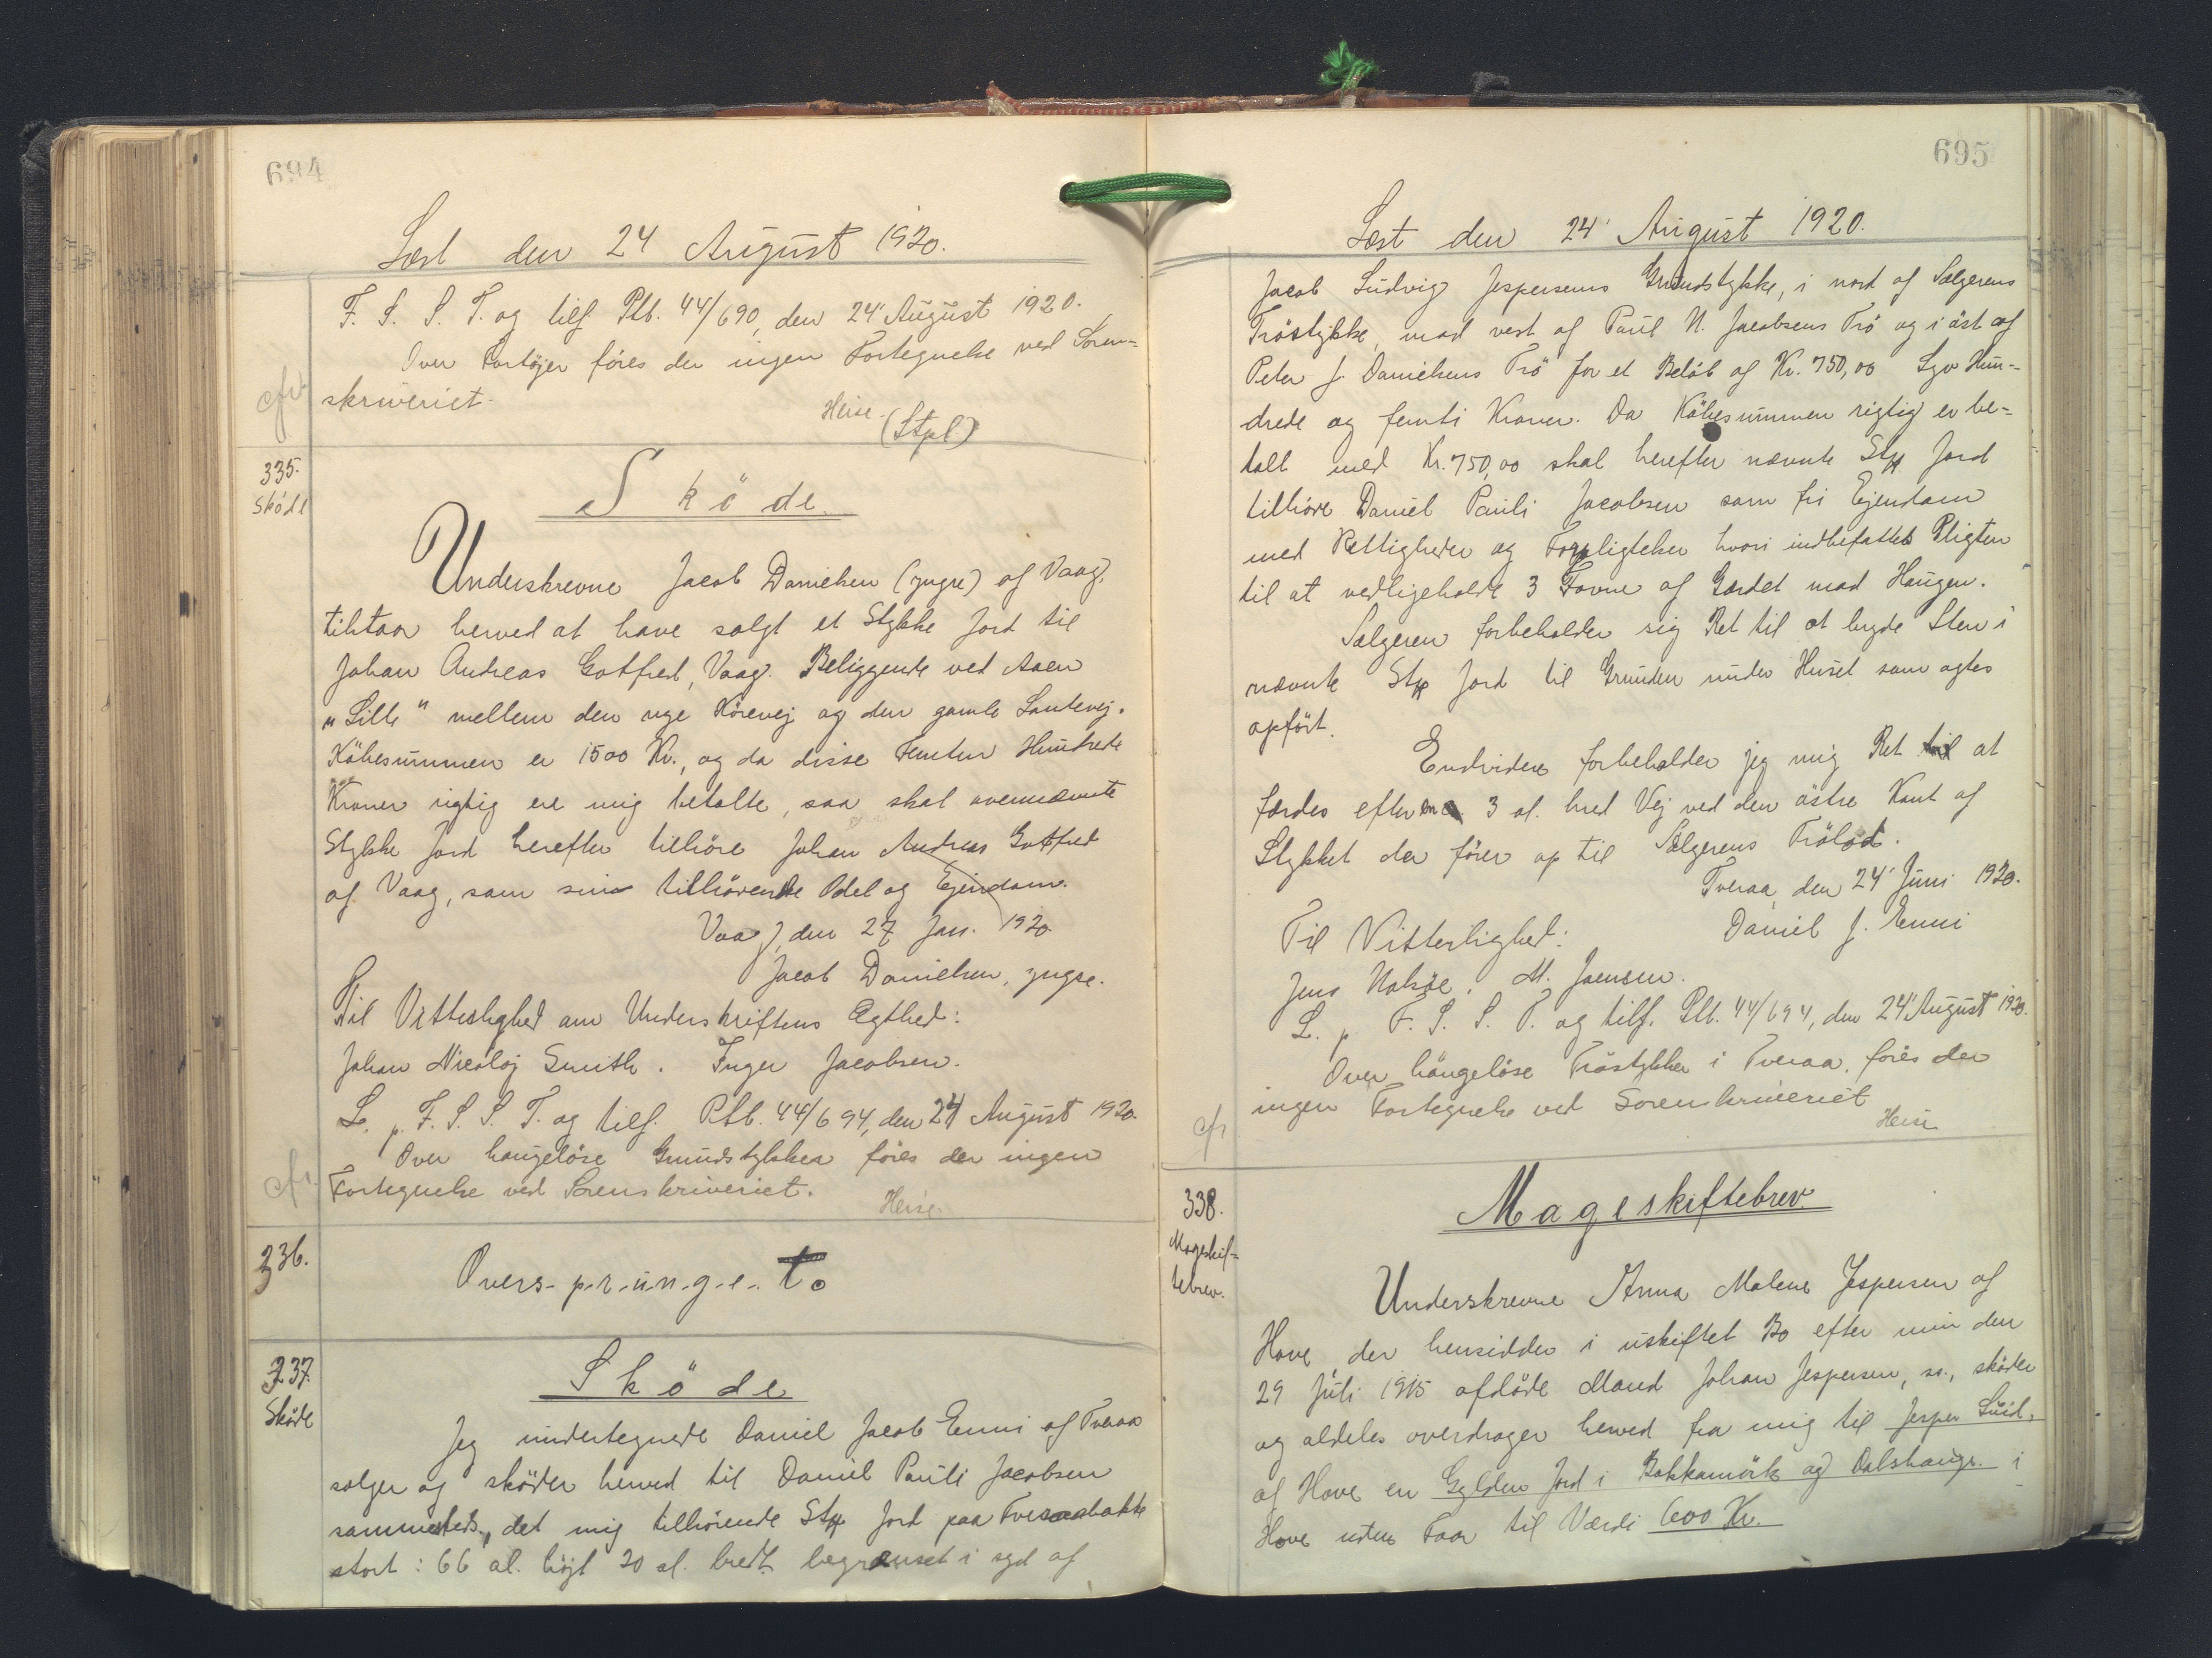 694
Læst den 24 August 1920.
F. S. S. T. og tilf. Ptb. 44/690, den 24' August 1920.
Over Fartöjer föres der ingen Fortegnelse ved Soren=
cfr. skriveriet.
Heise.
(Stpl)
335.
Sköde
Sköde.
Underskrevne Jacob Danielsen (yngre) af Vaag,
tilstaar herved at have solgt et Stykke Jord til
Johan Andreas Gotfred, Vaag. Beliggende ved Aaen
"Lille" mellem den nye Körevej og den gamle Landevej.
Köbesummen er 1500 Kr., og da disse Femten Hundrede
Kroner rigtig ere mig betalte, saa skal ovennævnte
Stykke Jord herefter tilhöre Johan Andreas Gotfred
af Vaag, som sin tilhörende Odel og Ejendom.
Vaag, den 27 Jan. 1920
Jacob Danielsen, yngre.
Til Vitterlighed om Underskriftens Ægthed:
Johan Nicolaj Smith. Inger Jacobsen.
L. p. F. S. S. T. og tilf. Ptb. 44/694, den 24 August 1920.
Over haugelöse Grundstykker föres der ingen
cfr. Fortegnelse ved Sorenskriveriet.
Heise.
336.
Overs-p-r-u-n-g-e-t.
337.
Sköde
Sköde
Jeg undertegnede Daniel Jacob Enni af Tveraa
sælger og sköder herved til Daniel Pauli Jacobsen
sammesteds, det mig tilhörende Stk Jord paa Tveraabakke
stort: 66 al. höjt 20 al. bredt begrænset i syd af
695
Læst den 24' August 1920.
Jacob Ludvig Jespersens Grundstykke, i nord af Sælgerens
Tröstykke, mod vest af Paul N. Jacobsens Trö og i öst af
Peter J. Danielsens Trö for et Belöb af Kr. 750,00 Syv Hun-
drede og femti Kroner. Da Köbesummen rigtig er be=
talt med Kr. 750,00 skal herefter nævnte Stk Jord
tilhöre Daniel Pauli Jacobsen som fri Ejendom
med Rettigheder og Forpligtelser hvori indbefattet Pligten
til at vedligeholde 3 Favne af Gærdet mod Haugen.
Sælgeren forbeholder sig Ret til at bryde Sten i
nævnte Stk Jord til Grunden under Huset som agtes
opfört.
Endvidere forbeholder jeg mig Ret til at
færdes efter en 3 al. bred Vej ved den östre Kant af
Stykket der förer op til Sælgerens Trölod.
Tveraa, den 24' Juni 1920.
Til Vitterlighed: Daniel J. Enni
Jens Nolsöe. M. Joensen.
L. p. F. S. S. T. og tilf. Ptb. 44/694, den 24' August 1920.
Over haugelöse Tröstykker i Tveraa, föres der
ingen Fortegnelse ved Sorenskriveriet
cfr
Heise
338.
Mageskif=
tebrev.
Mageskiftebrev.
Underskrevne Anna Malene Jespersen af
Hove, der hensidder i uskiftet Bo efter min den
29 Juli 1915 afdöde Mand Johan Jespersen, sr., sköder
og aldeles overdrager herved fra mig til Jesper Luid,
af Hove en Gylden Jord i Bakkamörk og Dalshauge i
Hove uden Faar til Værdi 600 Kr.